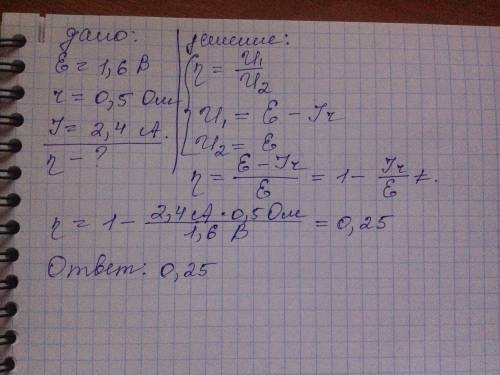 дано:
ε = 1,6 В
r = 0,5 Ом
I = 2,4 А.
η - ?
решение:
η = U₁/U₂
U₁ = ε - Ir
U₂ = ε
η = (ε - Ir)/ε = 1 - Ir/ε
η = 1 - (2,4 А · 0,5 Ом)/(1,6 В) = 0,25
Ответ: 0,25